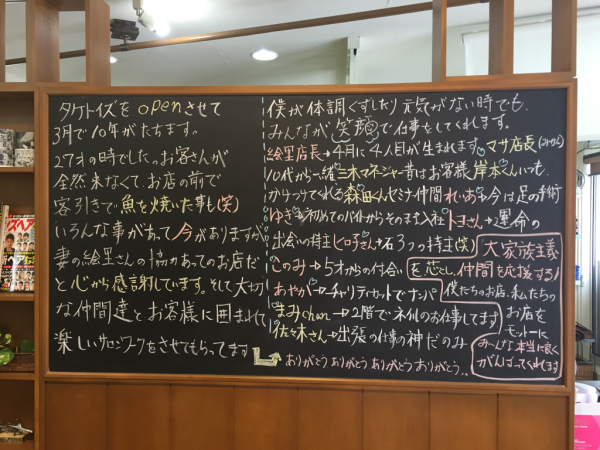 タケトイズをopenさせて
3月で10年がたちます。
27才の時でした。お客さんが
全然来なくて、お店の前で
客引きで魚を焼いた事も(笑)
いろんな事があって今がありますが
妻の絵里さんの協力あってのお店だ
と心から感謝しています。そして大切
な仲間達とお客様に囲まれて
楽しいサロンワークをさせてもらってます
僕が体調くずしたり元気がない時でも、
みんなが笑顔で仕事をしてくれます。
絵里店長→4月に4人目が生まれます マサ店長
10代から一緒 三木マネジャー昔はお客様 岸本くんいつも
かけつけてくれる 森田くんセミナー仲間 れいあ→今は足の手術
ゆぎ→初めてのバイトからそのまま入社 トヨさん→運命の
出会いの持主 ヒロ子さん→石3つの持主(笑)
このみ→5才からの付合い
あやか→チャリティカットでナンパ
まみchan→2階でネイルのお仕事してます
佐々木さん→出張の仕事の神だのみ
ありがとうありがとうありがとうありがとう..
大家族主義
を芯とし、仲間を応援する!
僕たちのお店、私たちの
お店を
モットーに
みーんな本当に良く
がんばってくれてます